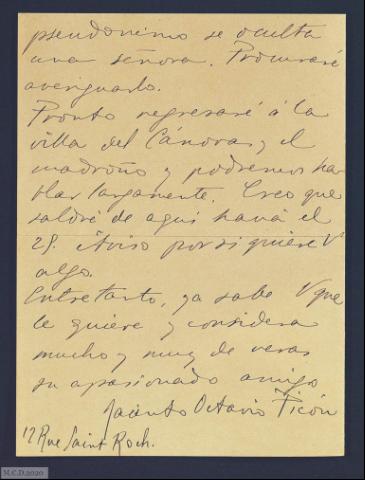 pseudonimo se oculta
una señora. Procuraré
averiguarlo.
Pronto regresaré á la
villa del Cánovas y el
madroño y podremos ha
blar largamente. Creo que
saldré de aquí hacia el
28. Aviso por si quiere V
algo.
Entretanto, ya sabe V que
le quiere y considera
mucho y muy de veras
su apasionado amigo
Jacinto Octavio Picón
17 Rue Saint Roch.
M.C.D.2020